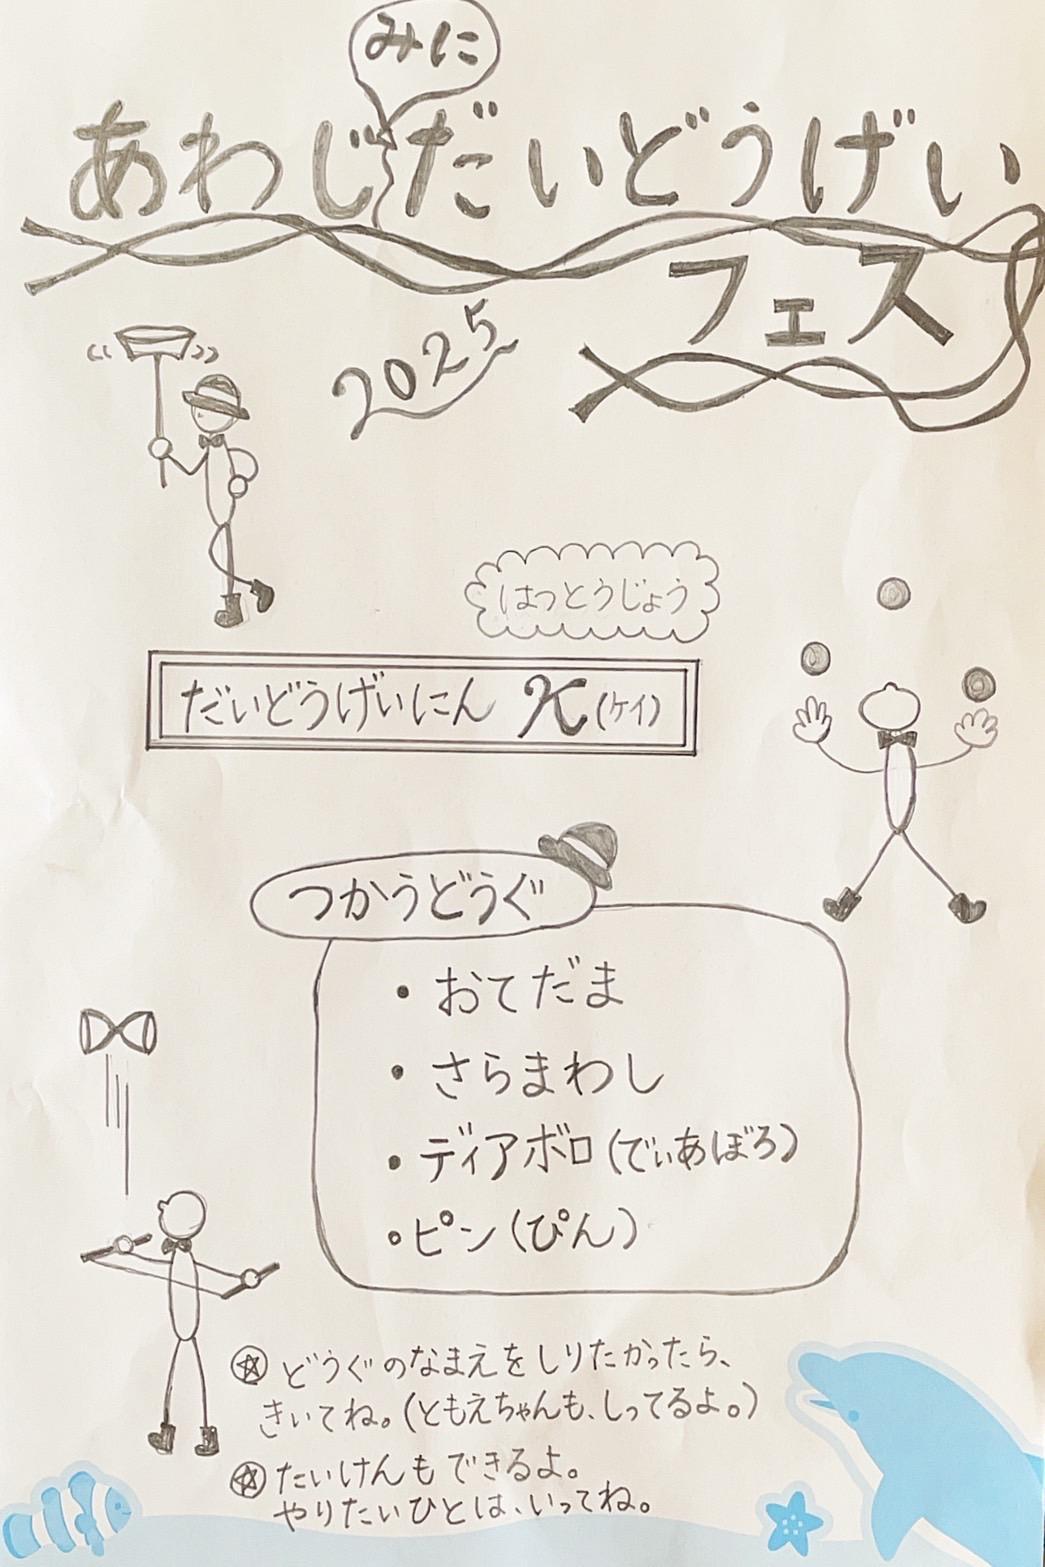 みに
あわじだいどうげい
フェス
2025
はっとうじょう
だいどうげいにん K(ケイ)
つかうどうぐ
・おてだま
・さらまわし
・ディアボロ(でぃあぼろ)
・ピン(ぴん)
☆どうぐのなまえをしりたかったら、
きいてね。(ともえちゃんも、しってるよ。)
☆たいけんもできるよ。
やりたいひとは、いってね。